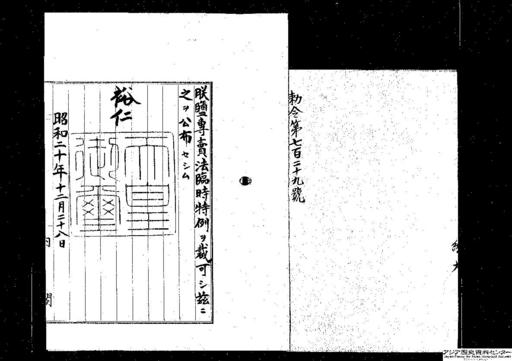 勅令第七百二十九號
朕鹽專賣法臨時特例ヲ裁可シ玆ニ
之ヲ公布セシム
裕仁
天皇御璽
昭和二十年十二月二十八日
内閣
アジア歴史資料センター